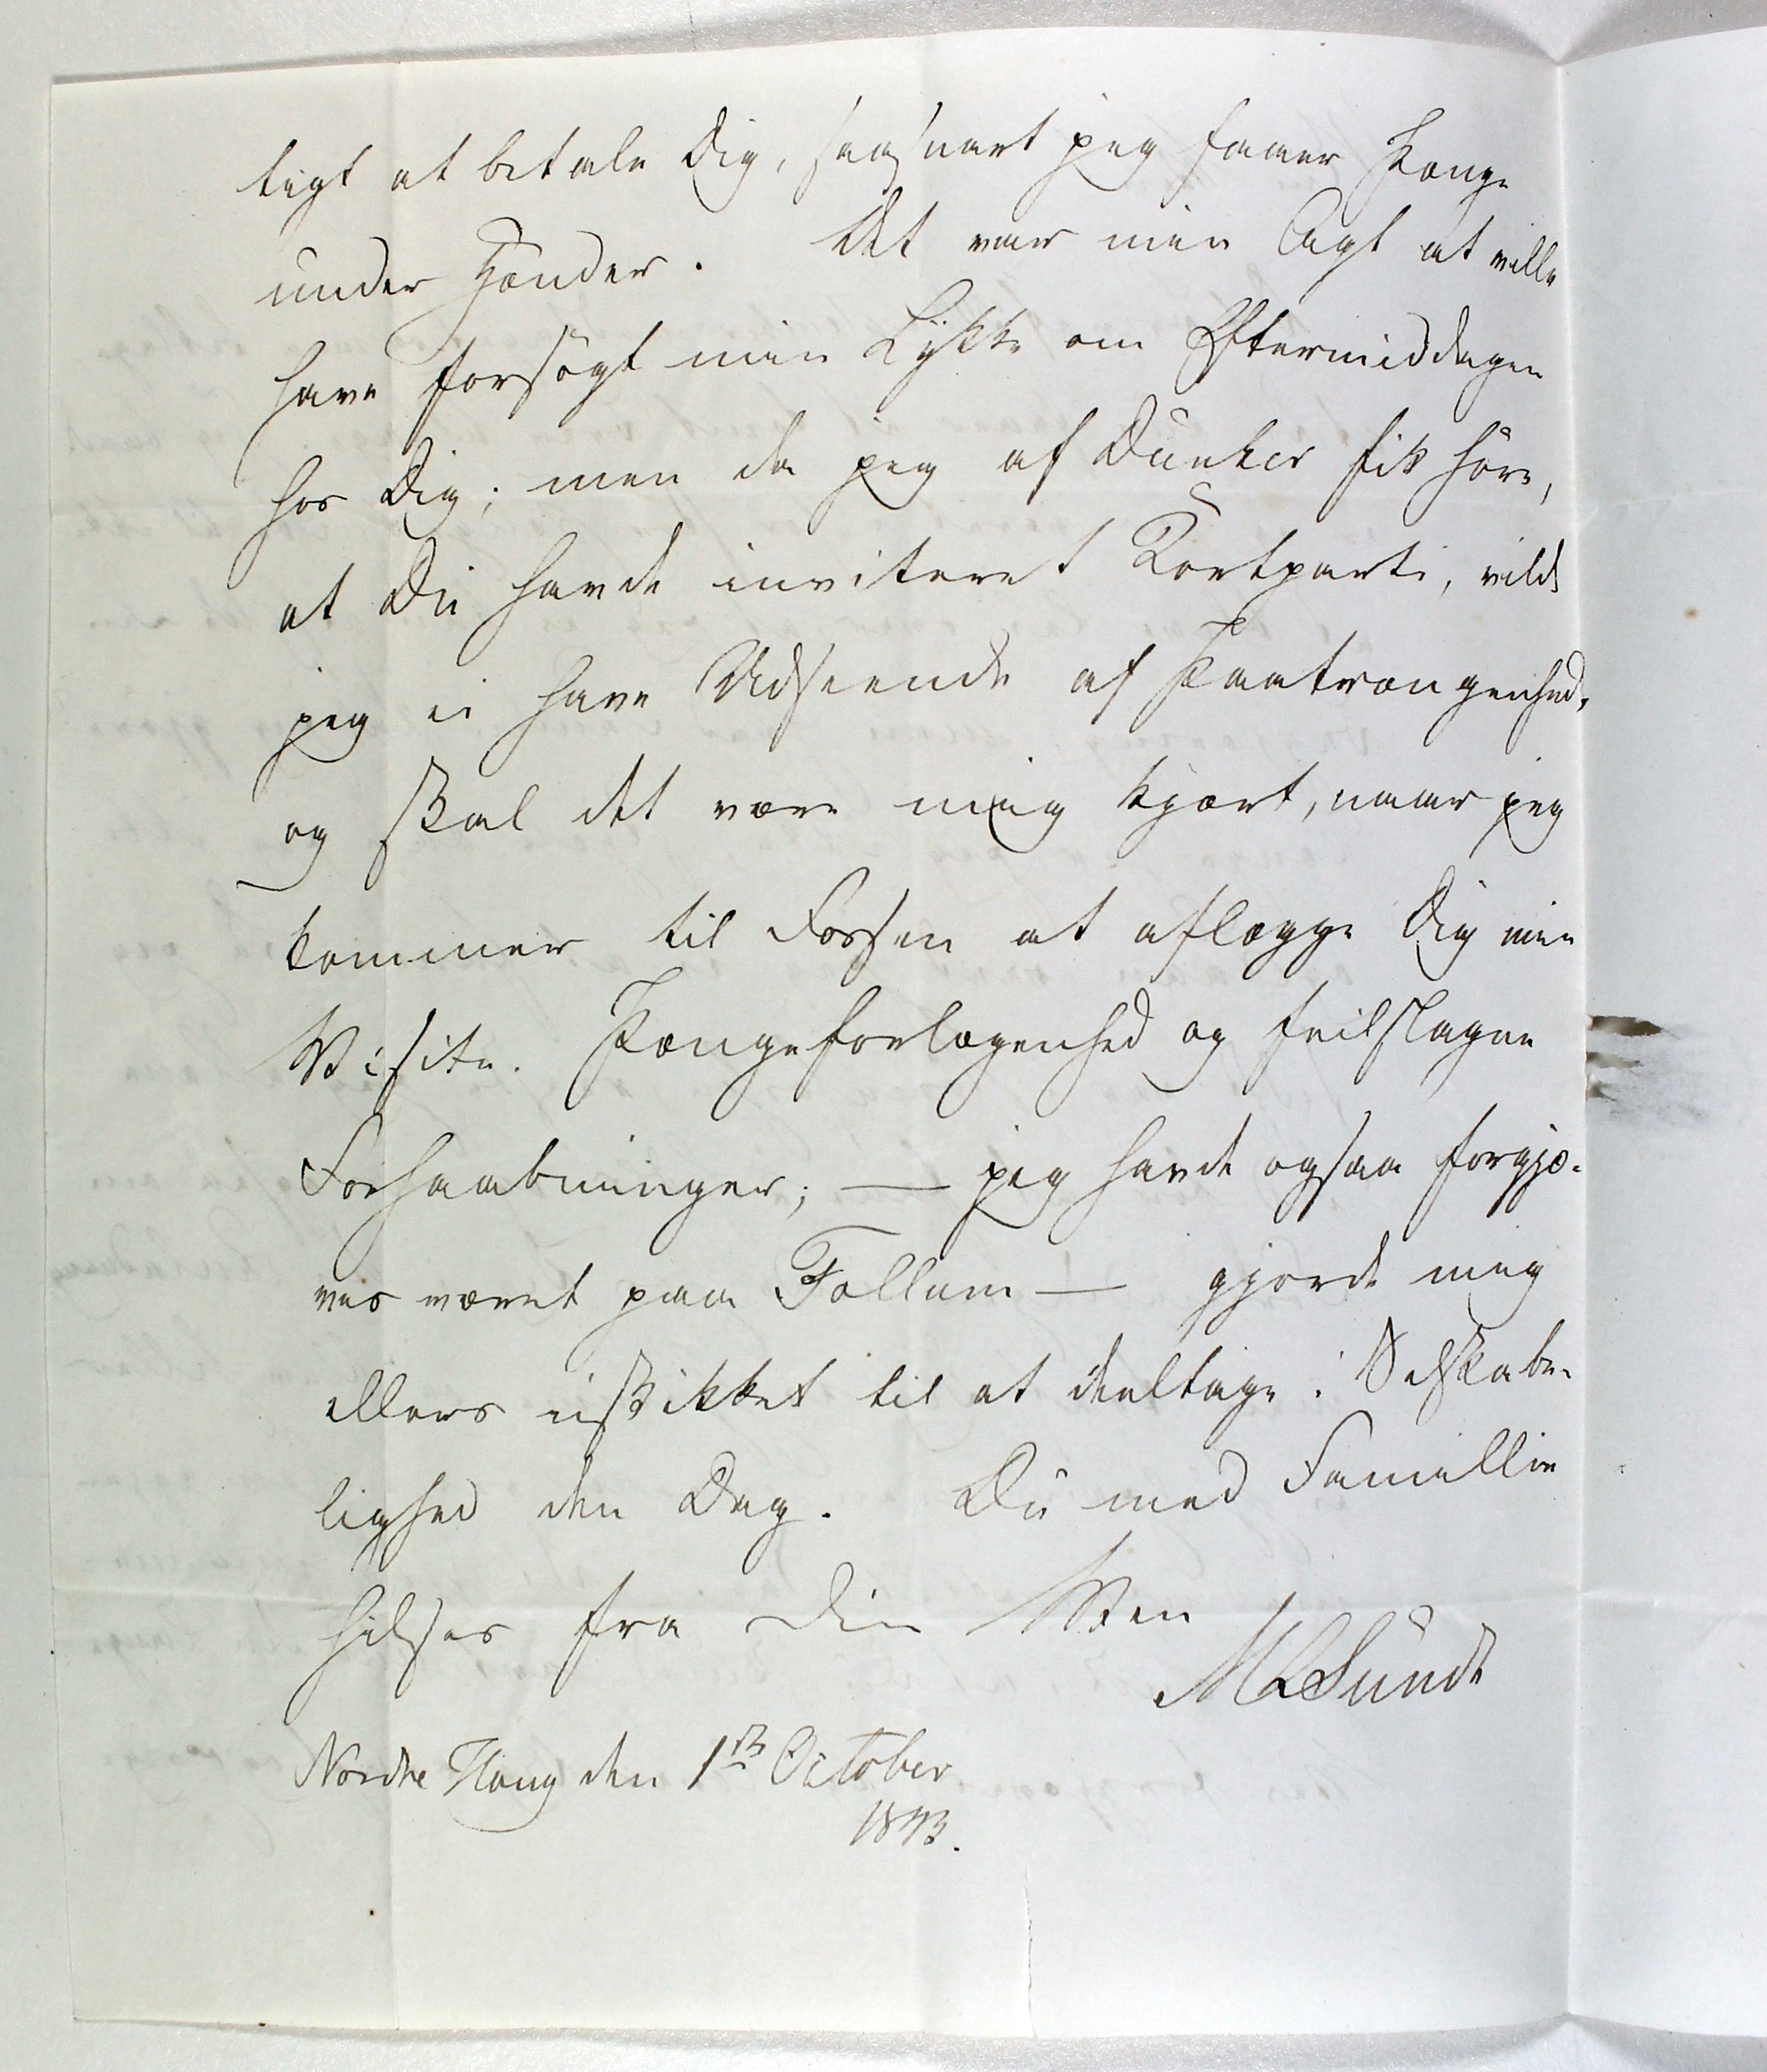 tigt at betale Dig, saasnart jeg faaer Penge
under Hænder. Det var min Agt at ville
have forsøgt min Lykke om Eftermiddagen
hos Dig; men da jeg af Dunker fik høre,
at Du havde inviteret Kortparti, vilde
jeg ei have Udseende af Paatrængenhed,
og skal det være mig kjært, naar jeg
kommer til Fossen at aflægge Dig min
Visite. Pengeforlegenhed og feilslagne
Forhaabninger; — jeg havde ogsaa forgjæ-
ves været paa Follum — gjorde mig
ellers uskikket til at deeltage i Selskabe-
lighed den Dag. Du med Famillie
hilses fra Din Ven
MLSundt
Nordre Houg den 1ste October
1843.